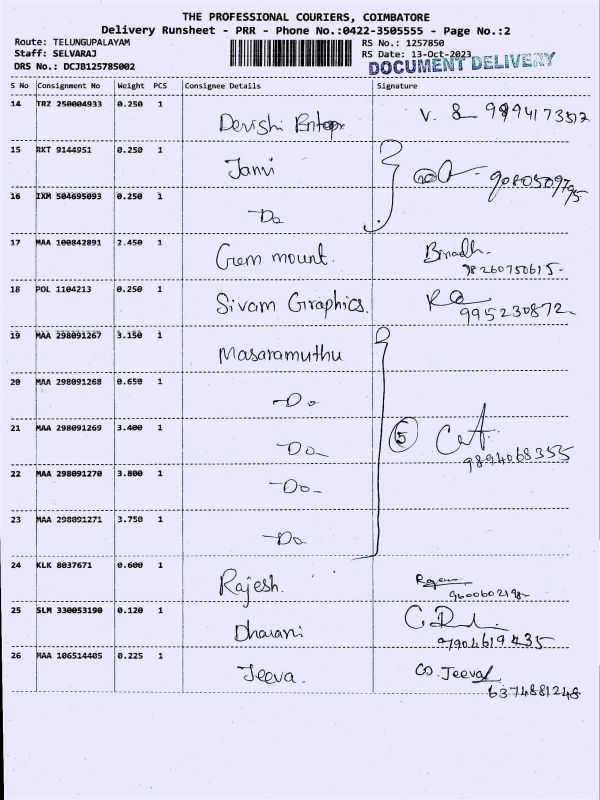 THE PROFESSIONAL COURIERS, COIMBATORE
Delivery Runsheet - PRR - Phone No.:0422-3505555 - Page No.:2
Route: TELUNGUPALAYAM
RS No.: 1257850
Staff: SELVARAJ
RS Date: 13-Oct-2023
DRS No.: DCJB125785002
DOCUMENT DELIVERY
S No Consignment No Weight PCS Consignee Details Signature
14 TRZ 250004933 0.250 1 Devishi
15 RKT 9144951 0.250 1 Janvi
9080509795
16 IXM 504695093 0.250 1 Do
17 MAA 100842891 2.450 1 Gem mount.
98260750615-
18 POL 1104213 0.250 1 Sivam Graphics.
9952230872
19 MAA 298091267 3.150 1 Masaramuthu
20 MAA 298091268 0.650 1 -Do
21 MAA 298091269 3.400 1 -Do- 5
9894068355
22 MAA 298091270 3.800 1 -Do-
23 MAA 298091271 3.750 1 -Do
24 KLK 8037671 0.600 1 Rajesh.
25 SLM 330053190 0.120 1 Dharani
7904619435
26 MAA 106514405 0.225 1 Jeeva. Jeeva
6374881248